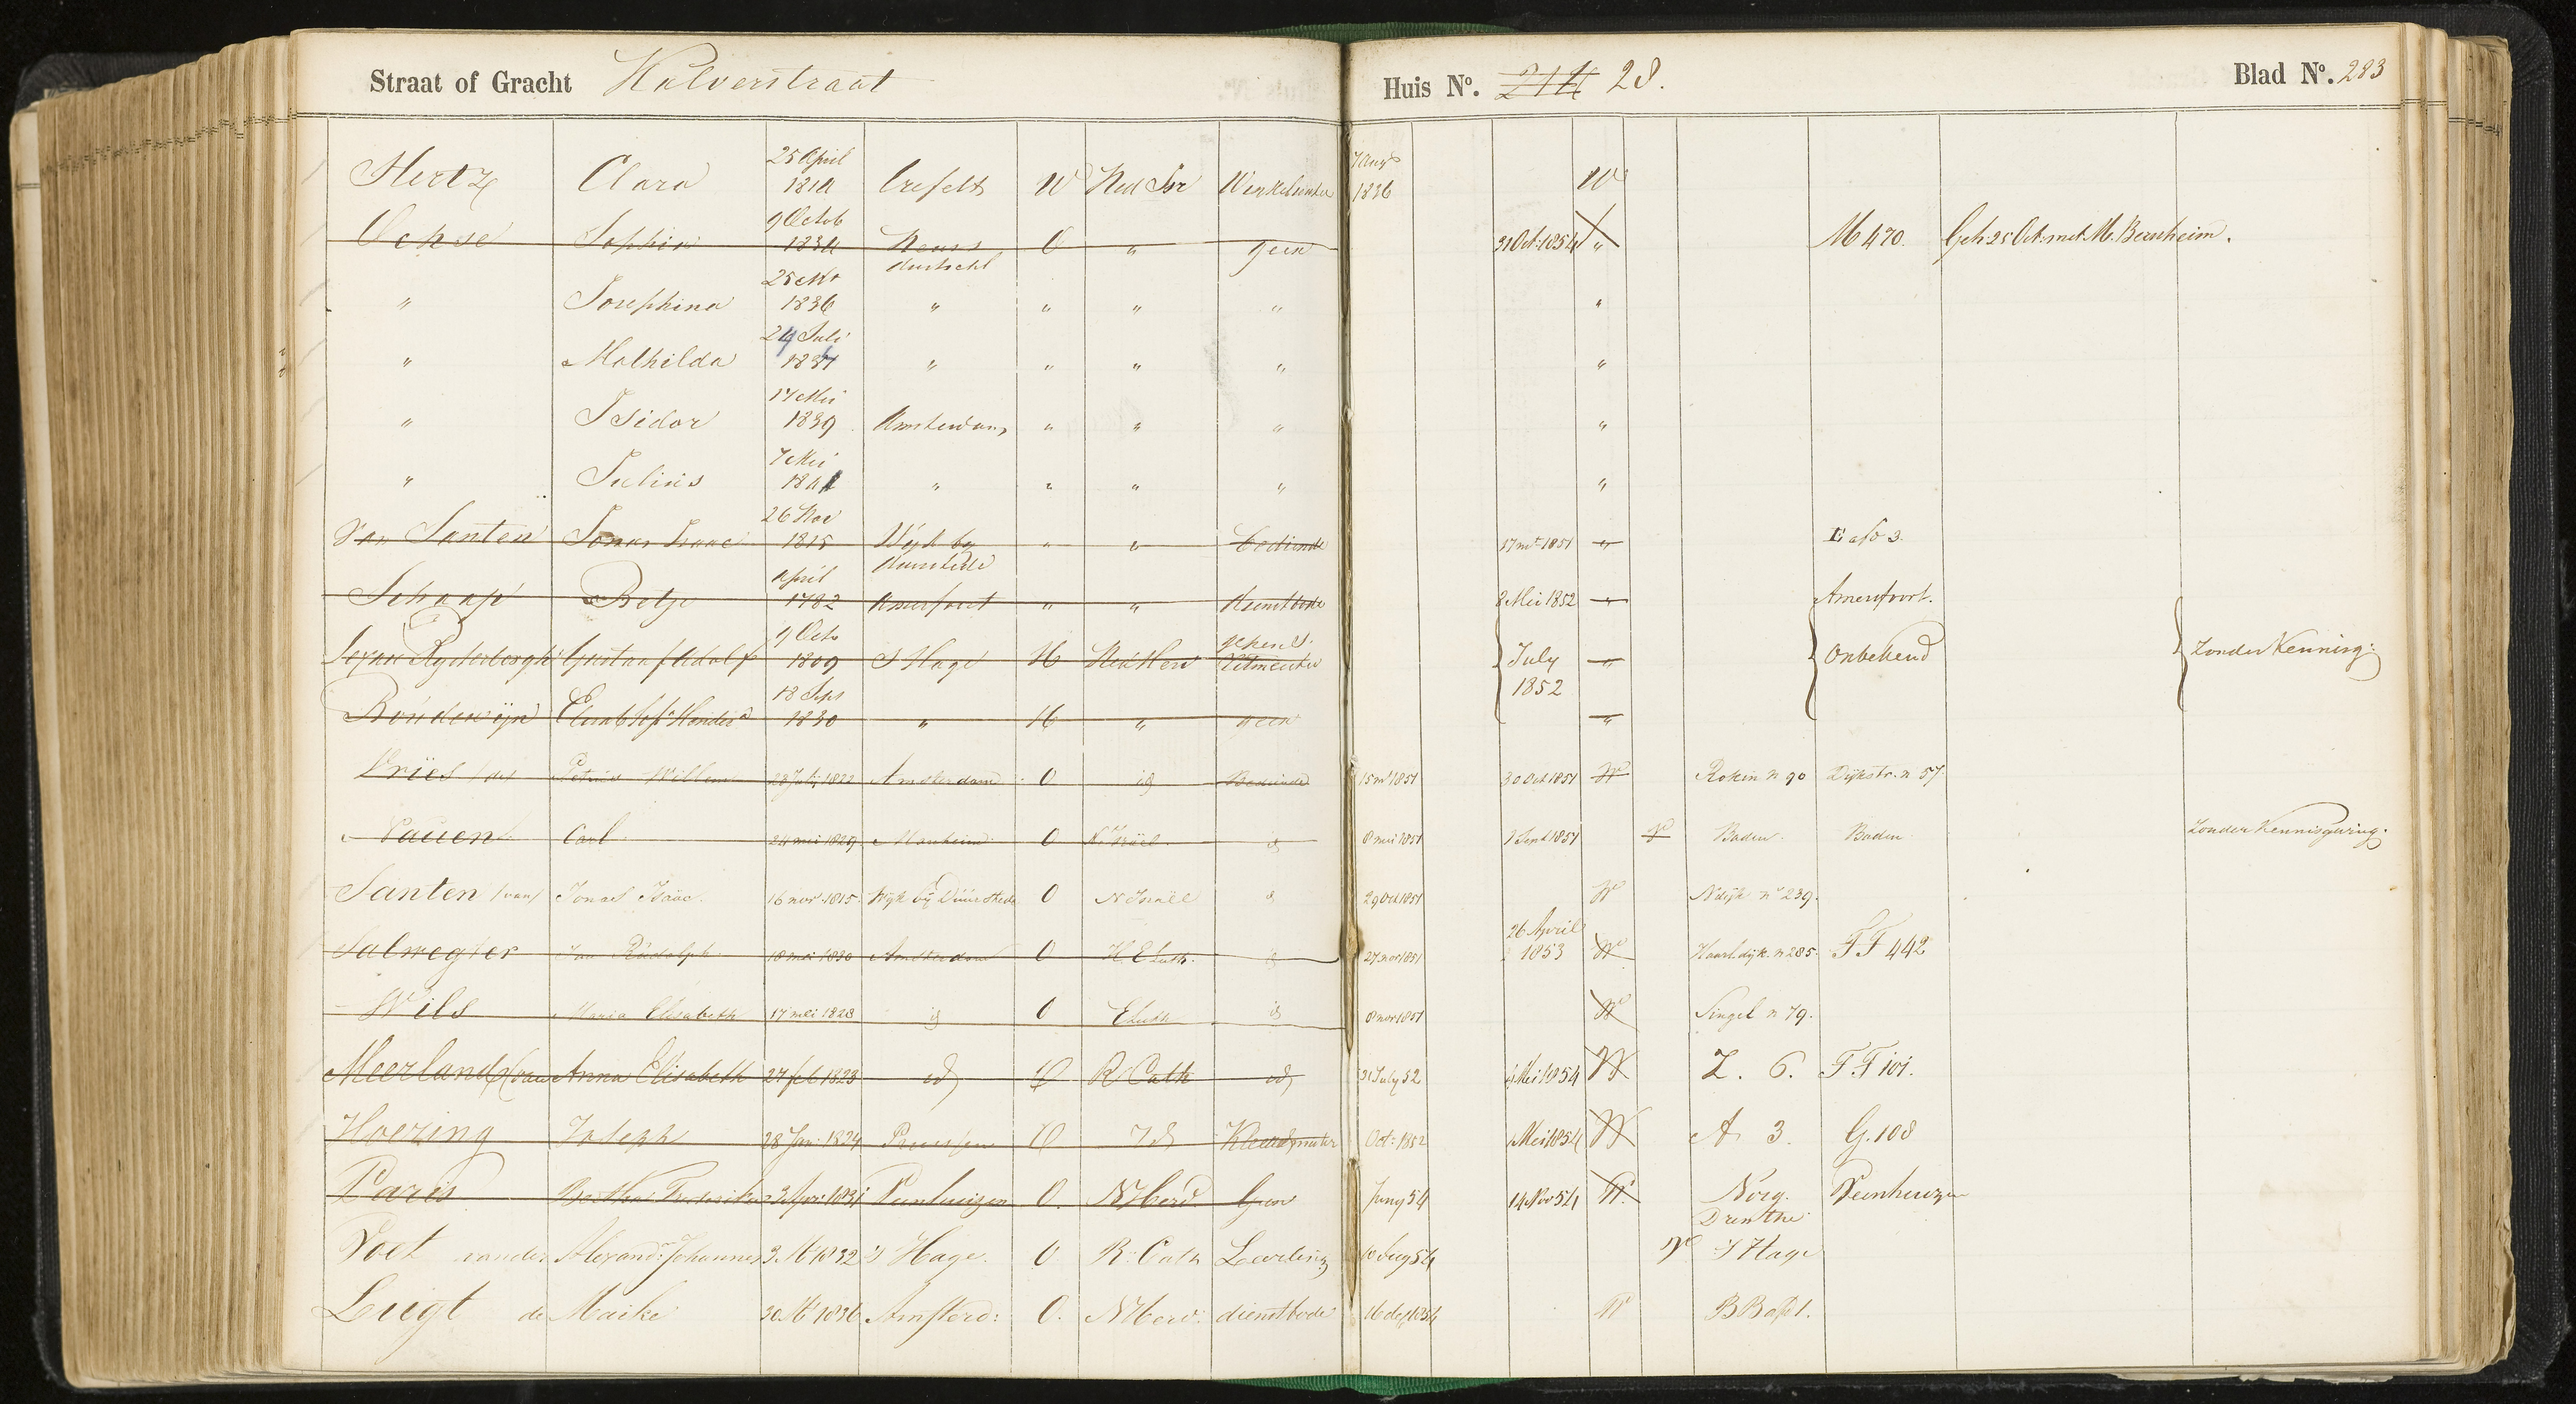 Straat of Gracht Kalverstraat Huis No. 28. Blad No. 283
25 April 7 Aug
Hertz Clara 1814 Crefelt W Ned Isr Winkelierster 1836 W
9 Octob
Ochse Sophia 1834 Neuss O " geen 31 Oct: 1854 " M 470. Geh: 25 Oct. met M. Bernheim.
25 Mt
" Josephina 1836 " " " " "
24 Juli
" Mathilda 1837 " " " " "
17 Mei
" Isidor 1839 Amsterdam " " " "
7 Mei
" Julius 1841 " " " " "
26 Nov
Van Santen Jonas Isaac 1815 Wijk by " " bediende 17 mt 1851 " E a/o 3.
Duurstede
April
Schaap Betje 1782 Amersfoort " " dienstbode 8 Mei 1852 " Amersfoort.
9 Octo gepens.
Gustaaf Adolf 1809 S Hage H Ned Herv Ritmeester July " Onbekend Zonder Kennisg:
18 Sept 1852
Boudewijn 1830 " H " geen "
Vries (de) Petrus Willem 23 July 1822 Amsterdam O id Bediende 15 mt 1851 30 Oct 1851 W Rokin n 90 Dijkstr. n 57.
Nauen Carl 24 mei 1829 Manheim O N. Israel. id 8 mei 1851 1 Sept 1851 W Baden. Baden Zonder Kennisgeving.
Santen (van) Jonas Isaac. 16 nov. 1815. Wijk bij Duurstede O N Israël id 29 Oct 1851 W Ndijk no 239.
26 April
Salmegier Jan Rudolph. 18 mei 1830 Amsterdam O H. E Luth. id 27 nov 1851 1853 W Haarl.dijk. n 285. FF 442
Wils Maria Elisabeth 17 mei 1828 id O E Luth id 8 nov 1851 W Singel n 79.
Meerland (van Anna Elisabeth 27 feb 1823 id O R Cath id 31 July 52 4 Mei 1854 W Z. 6. FF 101.
Hoezing Joseph 28 Jan: 1824 Pruissen O Id Kleedemaker Oct: 1852 Mei 1854 W A 3. G. 108
Paris Bertha Frederika 3 Apr: 1831 Veenhuizen O. N Herv. Geen Juny 54 14 Nov 54 W. Norg. Veenhuizen
Drenthe
Voet vander Alexandr Johannes 3. Mt 1832 'S Hage. O R. Cath Leerling 10 Aug 54 W S Hage
Luigt de Maike 30 Mt 1836 Amsterd: O. N Herv. dienstbode 16 dec 1854 W BB a/o 1.